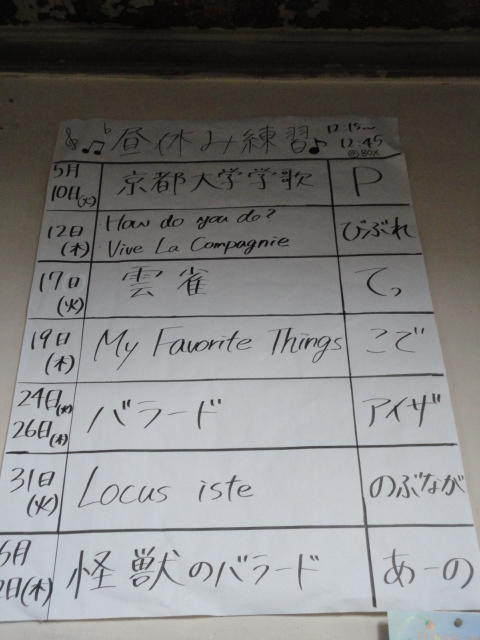 昼休み練習 12:15〜
12:45
@BOX
5月
10日(火) 京都大学学歌 P
12日(木) How do you do?
Vive La Compagnie びぶれ
17日(火) 雲雀 てっ
19日(木) My Favorite Things こで
24日(火)
26日(木) バラード アイザ
31日(火) Locus iste のぶなが
6月
2日(木) 怪獣のバラード あーの